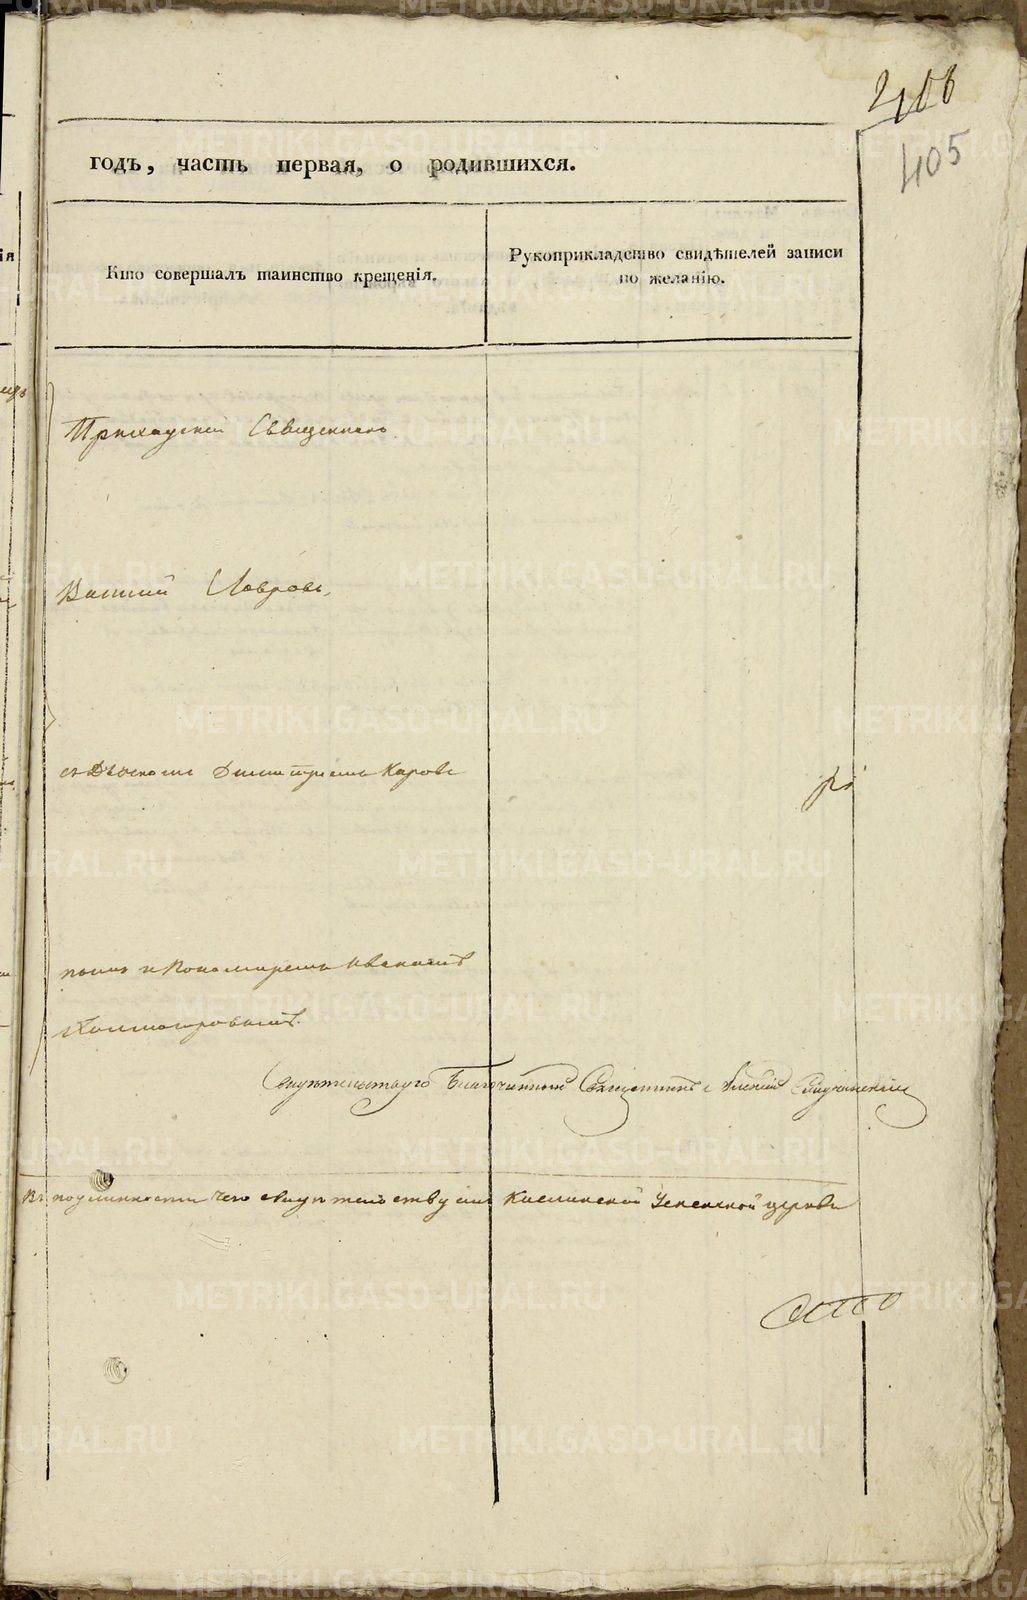 405
годъ, часть первая, о родившихся.
Кто совершалъ таинство крещенія.
Рукоприкладство свидѣтелей записи
по желанію.
Приходскій Священникъ
Василий Лавровъ,
съ Дьячкомъ Димитриемъ Каровы
нымъ и Пономаремъ Иваномъ
Свидѣтельствую Благочинный Священникъ Алексій
Въ подлинности чего свидѣтельствуемъ Каслинской Успенской церкви
METRIKI.GASO-URAL.RU